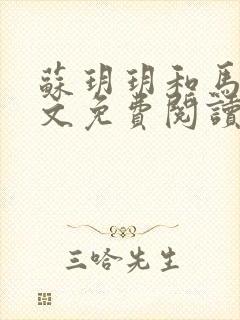 蘇玥玥和馬
文免費閱讀
三哈先生